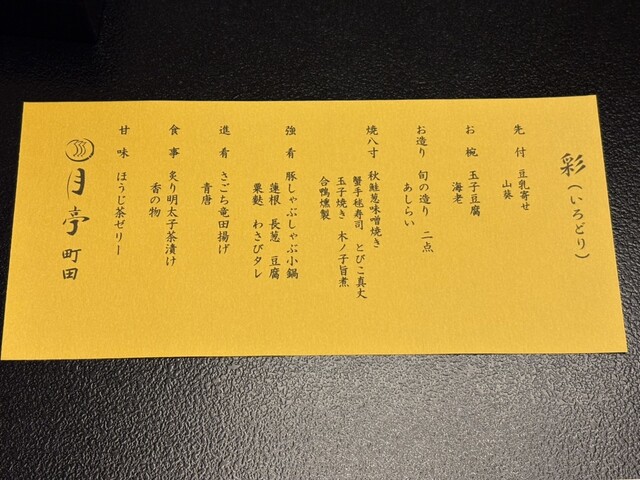 彩（いろどり）
先付 豆乳寄せ
山葵
お椀 玉子豆腐
海老
お造り 旬の造り 二点
あしらい
焼八寸 秋鮭葱味噌焼き
蟹手毬寿司 とびこ真丈
玉子焼き 木ノ子旨煮
合鴨燻製
強肴 豚しゃぶしゃぶ小鍋
蓮根 長葱 豆腐
粟麩 わさびタレ
進肴 さごち竜田揚げ
青唐
食事 炙り明太子茶漬け
香の物
甘味 ほうじ茶ゼリー
月亭 町田